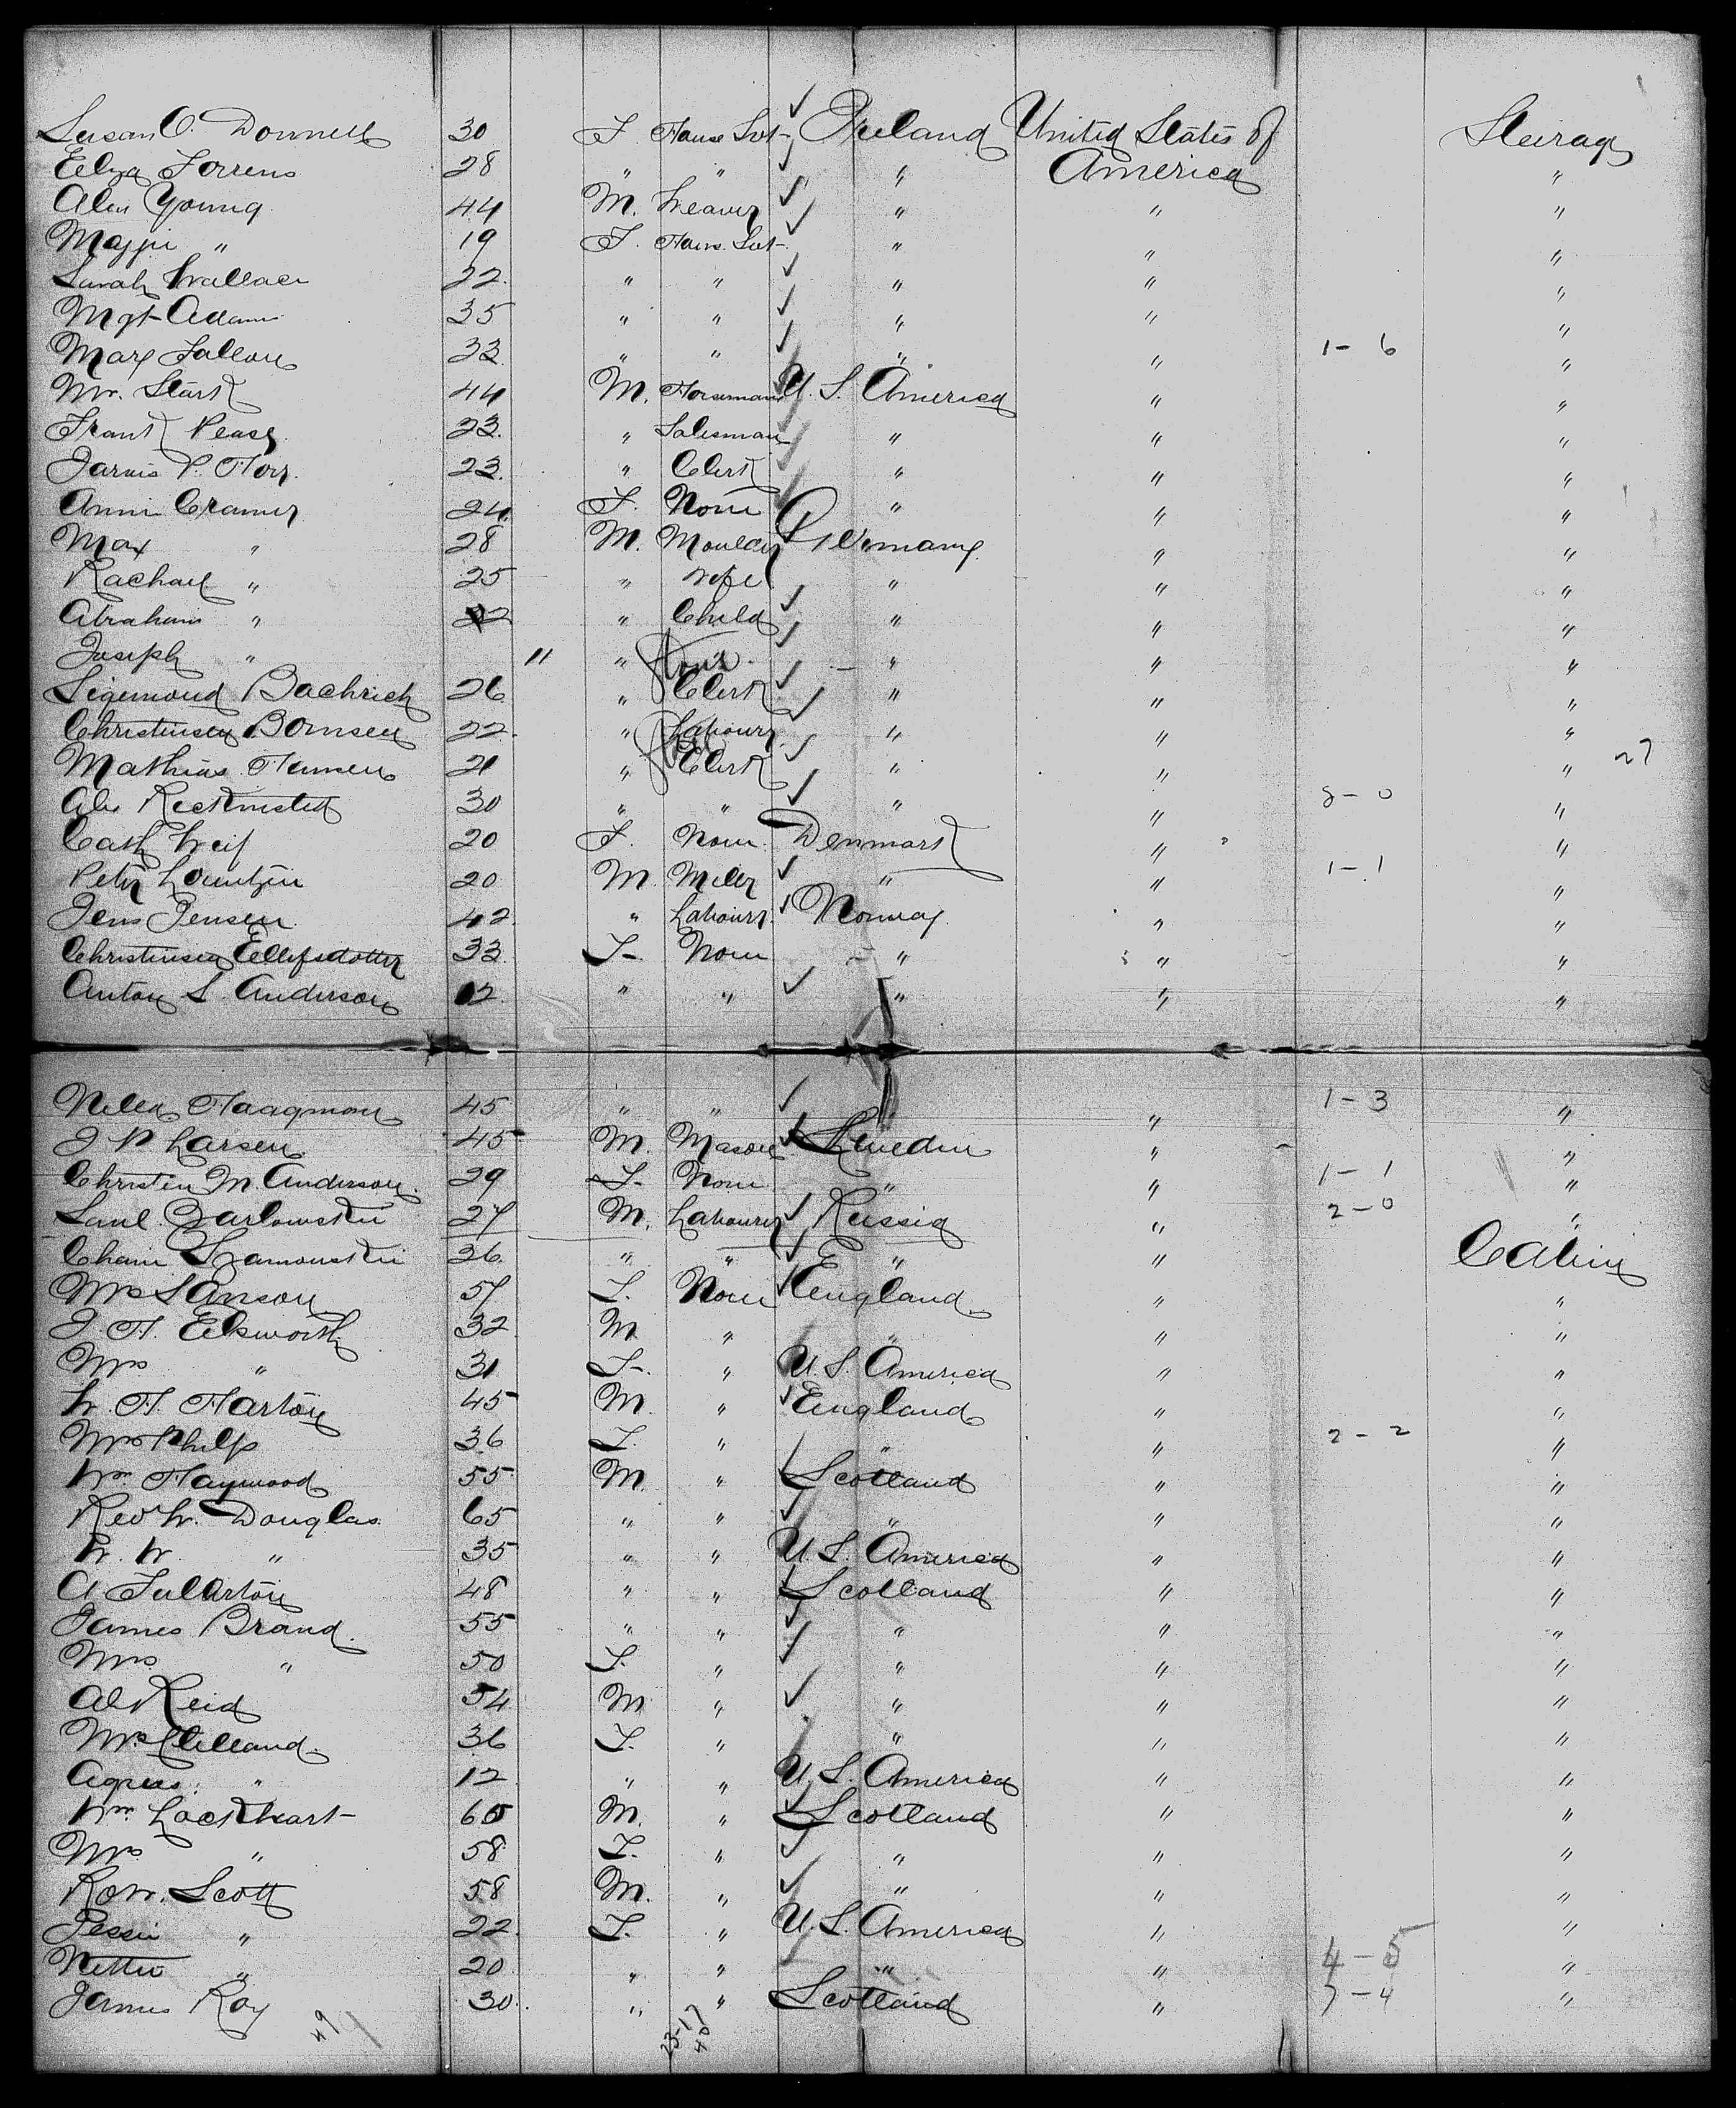 Susan O. Donnell 30 F. House Svt Ireland United States of Steirage
Eliza Torrens 28 " " " America "
Alex Young 44 M. Weaver " " "
Maggie " 19 F. Hous. Svt " " "
Sarah Wallace 22. " " " " "
Mgt Adams 35 " " " " "
Mary Fallon 33 " " " " 1-6 "
Mr. Stark 44 M. Horseman U.S. America " "
Frank Pease 23. " Salesman " " "
Jarvis P. Horr. 23. " Clerk " " "
Annie Cramer 24. F. None " " "
Max " 28 M. Moulder Germany. " "
Rachael " 25 " wife " " "
Abraham " " Child " " "
Joseph " 11 " " " "
Sigemond Bachrich 26 " Clerk " " "
Christensen Bomsen 22. " Labourer " " "
Mathias Hansen 21 " Clerk " " " 27
Alex 30 " " " " "
Cath Weif 20 F. None. Denmark " "
Peter Launtzin 20 M. Miller " " 1-1 "
Jens Jensen 42. " Labourer. Norway. " "
Christensen Ellefsdotter 33. F- None " " "
Anton S. Anderson 12. " " " " "
Nella Haagman 45 " " " 1-3 "
J P Larsen 45 M. Mason Sweden " "
Christin M. Anderson. 29 F. None " " 1-1 "
Saul. Zarlowskie 27 M. Labourer Russia " 2-0 "
Chaim 36. " " " " Cabin
Mrs S Anson 57 F. None England. " "
J. H. Elsworth 32 M " " " "
Mrs " 31 F- " U.S. America " "
W. H. Harton 45 M. " England " "
Mrs Philp 36 F. " " " 2-2 "
Wm Haywood 55 M " Scotland " "
Rev W. Douglas. 65 " " " " "
W. W. " 35 " " U.S. America " "
A Fullarton 48 " " Scotland " "
James Brand. 55 " " " " "
Mrs " 50 F. " " " "
Al Reid 54 M " " " "
Mrs Clelland. 36 F. " " " "
Agness " 12 " " U.S. America " "
Wm Lockhart 60 M. " Scotland " "
Mrs " 58 F. " " " "
Rob. Scott 58 M. " " " "
Jessie " 22. F. " U.S. America " "
Nettie " 20. " " " " 4-5 "
James Roy 30. " " Scotland " 3-4 "
49 23-17